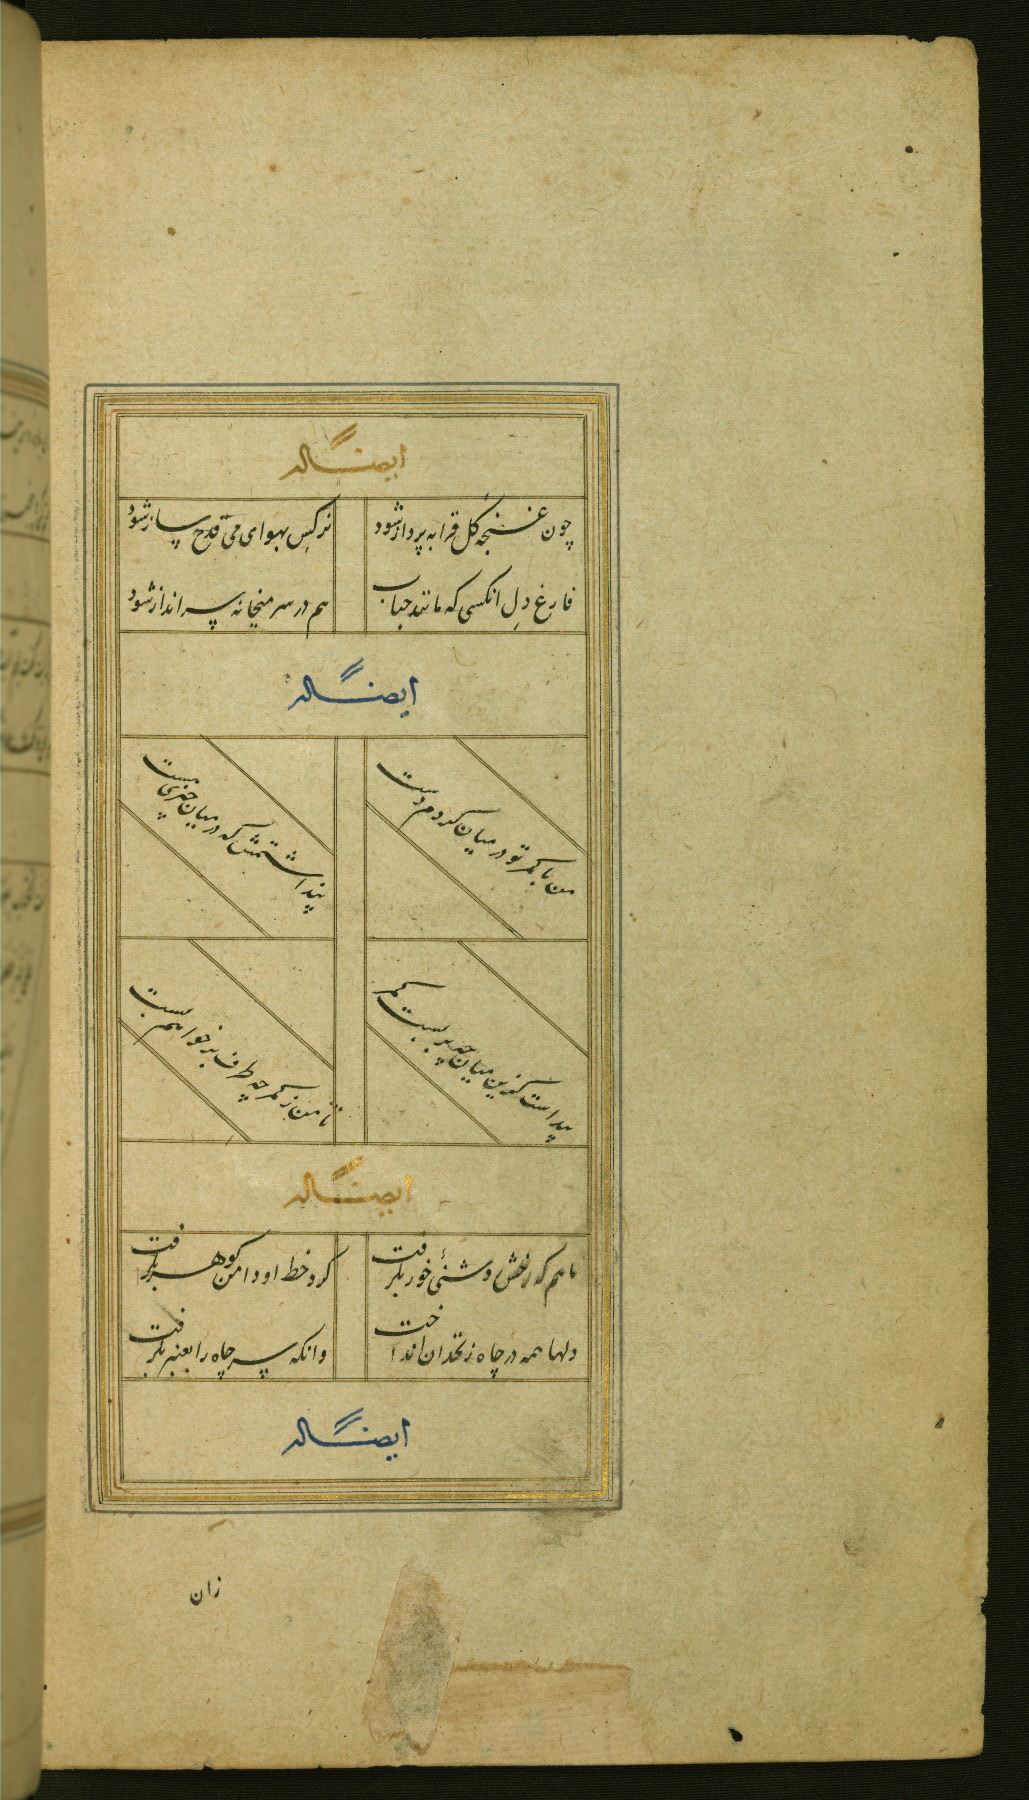 ایضاً له
چون غنچه گل قرابه پرداز شود
نرکس بهوای می قدح ساز شود
فارغ دل انکسی که مانند حباب
هم در سر میخانه سر انداز شود
ایضاً له
من با کمر تو در میان کردم دست
پنداشتمش که در میان چیزی هست
پیداست کزین میان چه بر بست کمر
تا من ز کمر چه طرف بر خواهم بست
ایضاً له
ماهم که رخش روشنئ خور بکرفت
کرد خط او دامن کوثر بکرفت
دلها همه در چاه زنخدان انداخت
وانکه سر چاه را بعنبر بکرفت
ایضاً له
زان